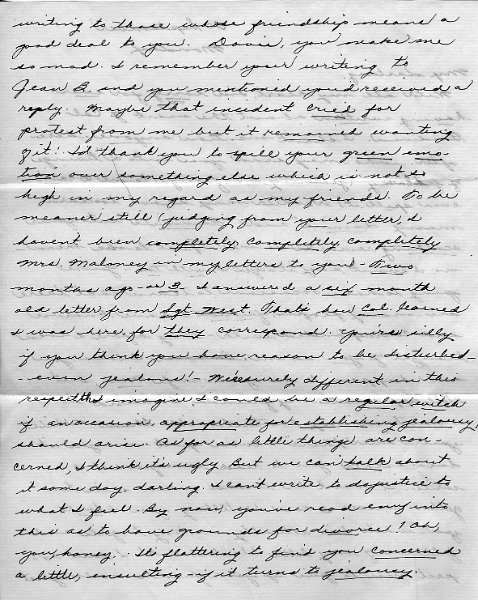 writing to those whose friendship means a
good deal to you. Davis, you make me
so mad. I remember your writing to
Jean B. and you mentioned you'd received a
reply. Maybe that incident cried for
protest from me but it remained wanting
of it! I'd thank you to spill your green emo-
tion over something else which is not so
high in my regard as my friends. To be
meaner still (judging from your letter, I
haven't been completely, completely completely
Mrs. Maloney in my letters to you) - Two
months ago - or 3 I answered a six month
old letter from Sgt. West. That's how Col. learned
I was here, for they correspond. You're silly
if you think you have reason to be disturbed -
- even jealous! - We're surely different in this
respect I imagine I could be a regular witch
if an occasion, appropriate for establishing jealousy,
should arise. As for as little things are con-
cerned, I think it's ugly. But we can talk about
it some day, darling. I can't write to do justice to
what I feel. By now, you've read envy into
this as to have grounds for divorce! Oh,
you, honey. It's flattering to find you concerned
a little, insulting - if it turns to jealousy.